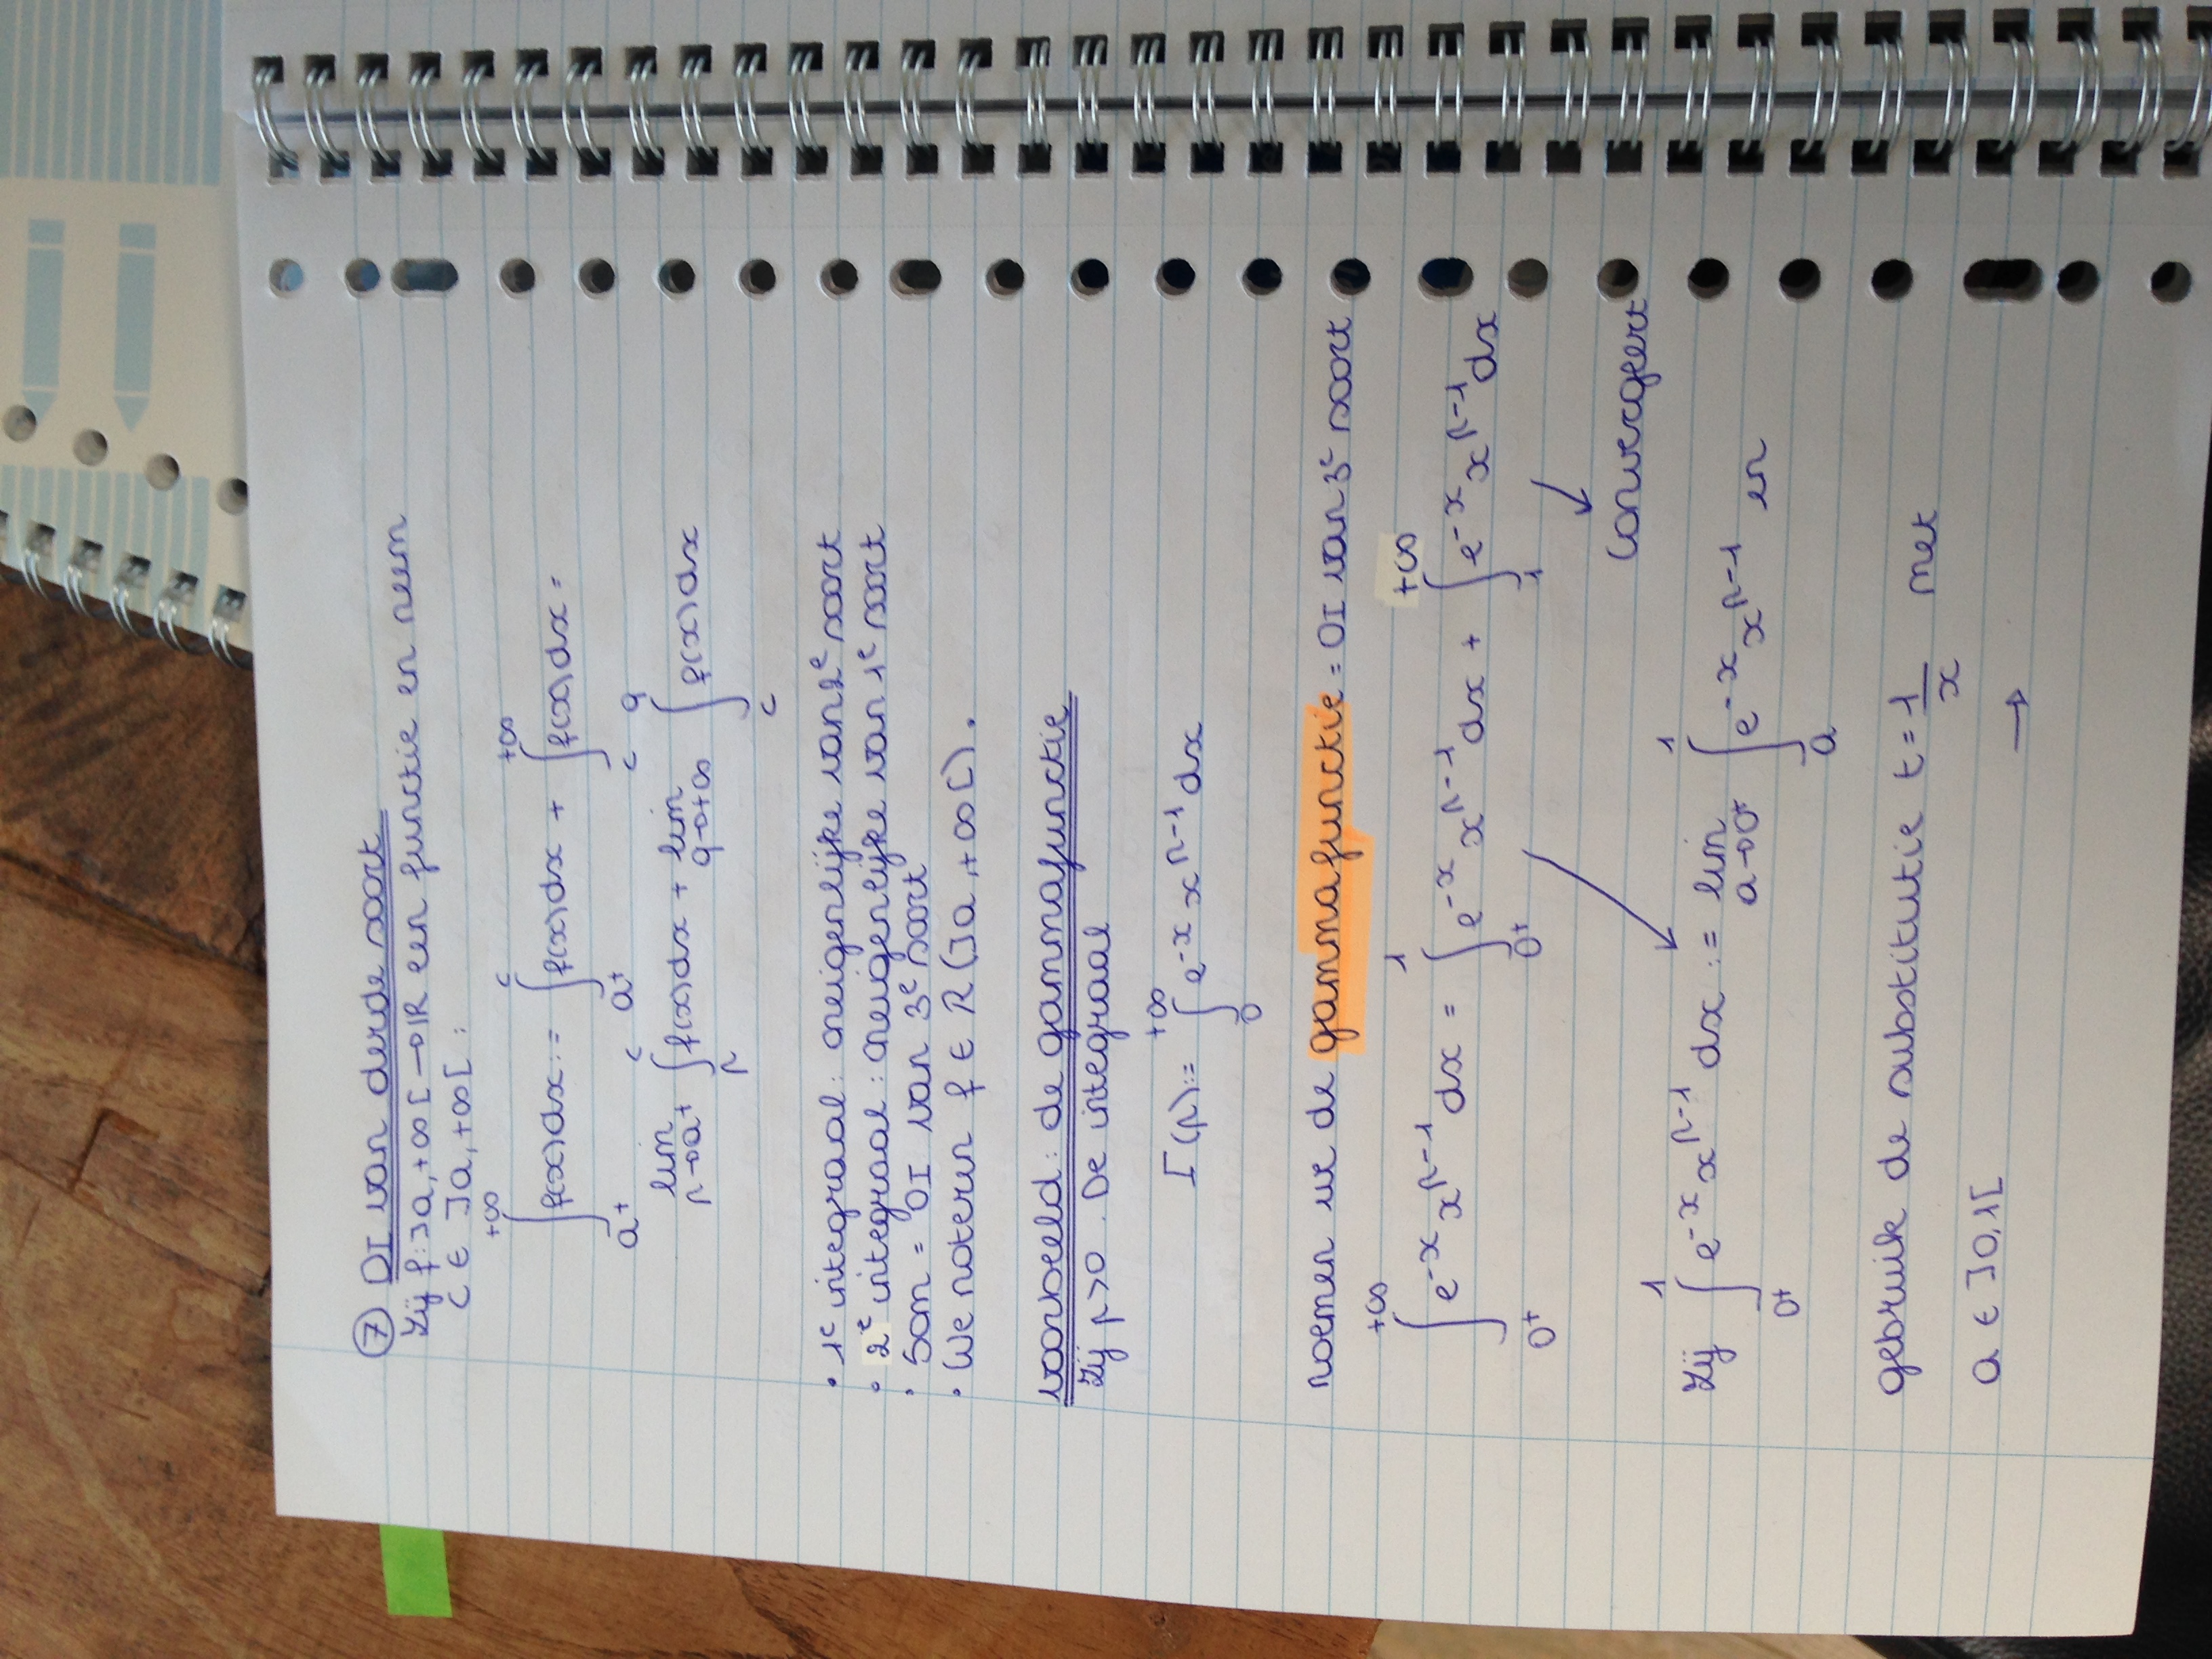 ⑦ OI van derde soort
Zij f: ]a, +∞[ → ℝ een functie en neem
c ∈ ]a, +∞[ :
∫_{a+}^{+∞} f(x)dx := ∫_{a+}^{c} f(x)dx + ∫_{c}^{+∞} f(x)dx =
lim_{p→a+} ∫_{p}^{c} f(x)dx + lim_{q→+∞} ∫_{c}^{q} f(x)dx
• 1e integraal: oneigenlijke van 2e soort
• 2e integraal: oneigenlijke van 1e soort
• Som = OI van 3e soort
• We noteren f ∈ R(]a, +∞[).
voorbeeld: de gammafunctie
Zij p>0. De integraal
Γ(p) := ∫_{0}^{+∞} e^{-x} x^{p-1} dx
noemen we de gammafunctie = OI van 3e soort
∫_{0+}^{+∞} e^{-x} x^{p-1} dx = ∫_{0+}^{1} e^{-x} x^{p-1} dx + ∫_{1}^{+∞} e^{-x} x^{p-1} dx
convergeert
Zij ∫_{0+}^{1} e^{-x} x^{p-1} dx := lim_{a→0+} ∫_{a}^{1} e^{-x} x^{p-1} en
gebruik de substitutie t = 1/x met
a ∈ ]0,1[ →